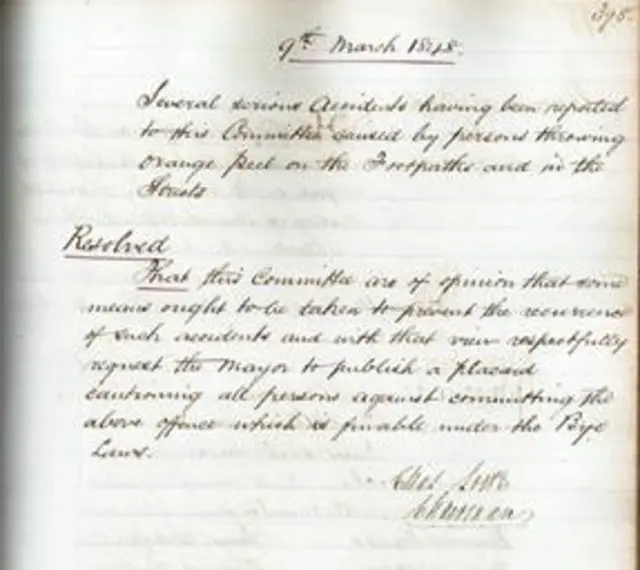 395.
9th March 1848.
Several serious Accidents having been reported
to this Committee caused by persons throwing
Orange Peel on the Footpaths and in the
Streets
Resolved
That this Committee are of opinion that some
means ought to be taken to prevent the recurrence
of such accidents and with that view respectfully
request the Mayor to publish a placard
cautioning all persons against committing the
above offence which is finable under the Bye
Laws.
Chairman